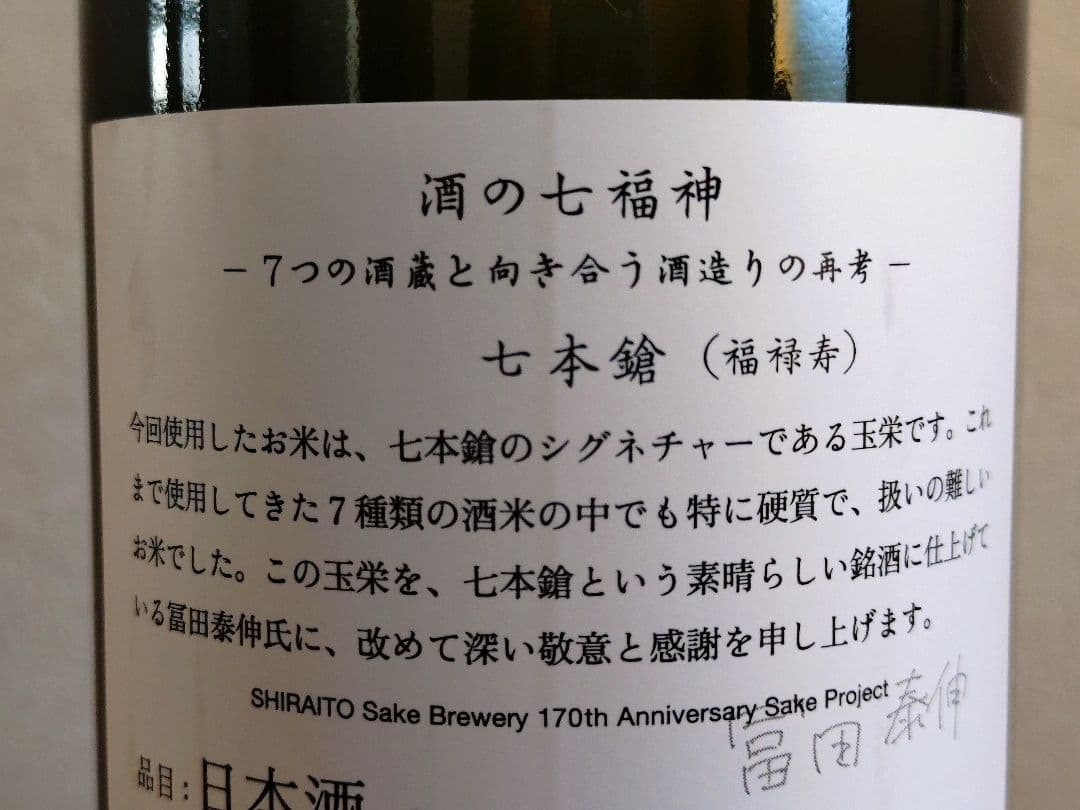 酒の七福神
－7つの酒蔵と向き合う酒造りの再考－
七本鎗（福禄寿）
今回使用したお米は、七本鎗のシグネチャーである玉栄です。これ
まで使用してきた7種類の酒米の中でも特に硬質で、扱いの難しい
お米でした。この玉栄を、七本鎗という素晴らしい銘酒に仕上げて
いる冨田泰伸氏に、改めて深い敬意と感謝を申し上げます。
SHIRAITO Sake Brewery 170th Anniversary Sake Project
冨田泰伸
品目：日本酒